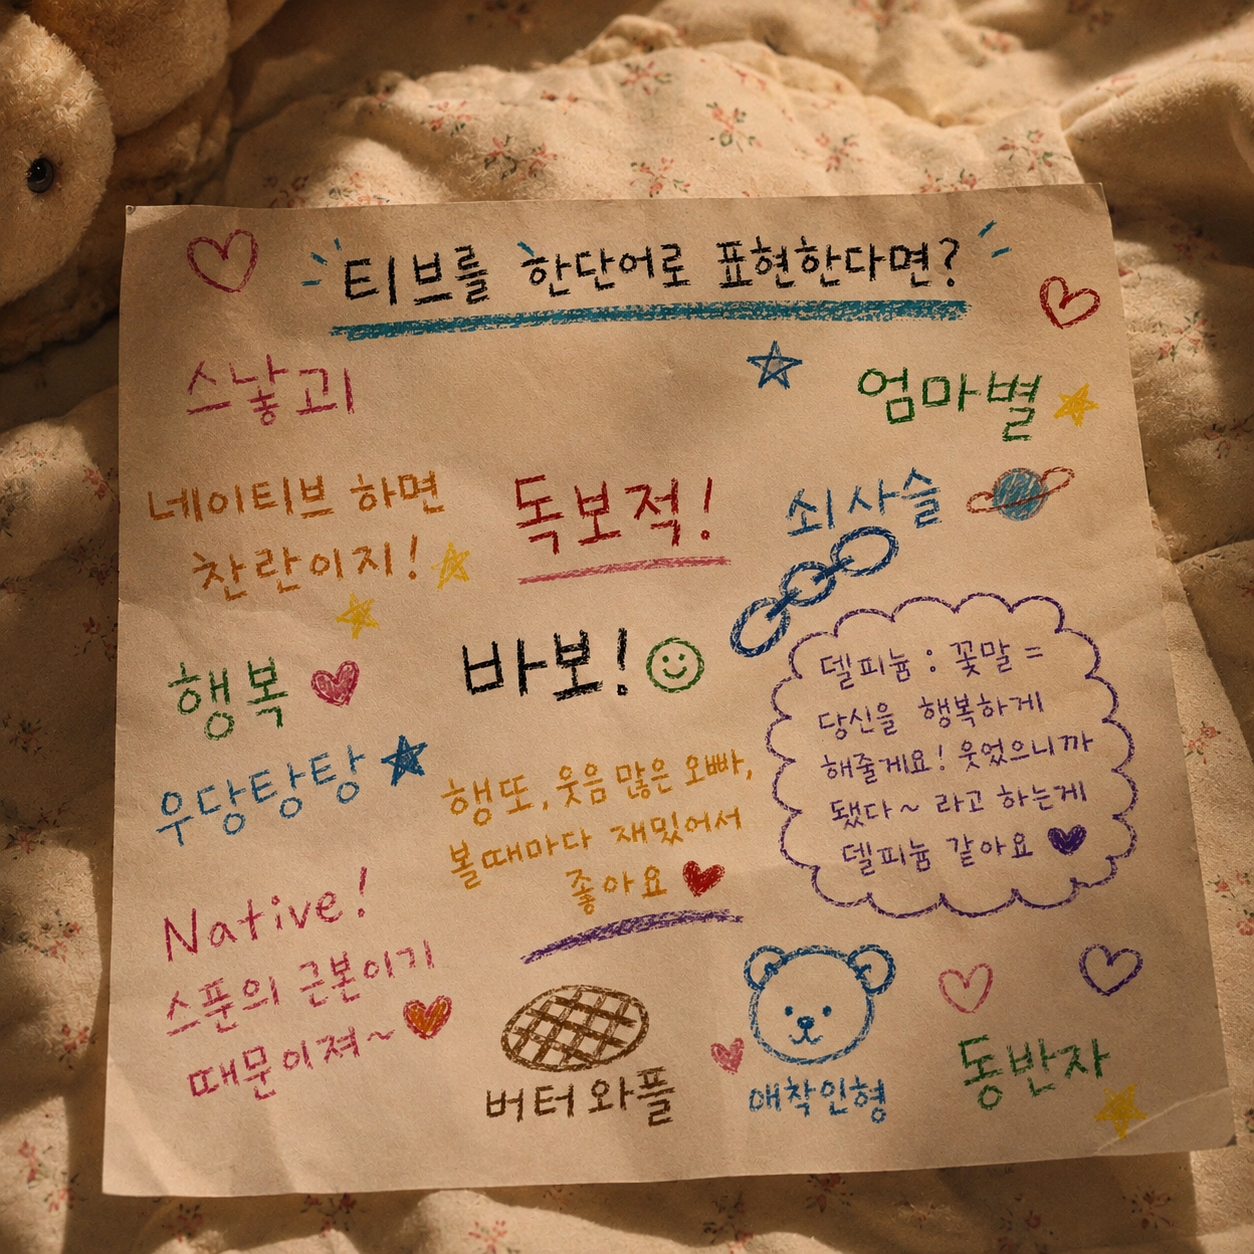 티브를 한단어로 표현한다면?
스낳괴
엄마별
네이티브 하면
찬란이지!
독보적!
쇠사슬
행복
바보!
델피늄 : 꽃말 =
당신을 행복하게
해줄게요! 웃었으니까
됐다~ 라고 하는게
델피늄 같아요
우당탕탕
행또, 웃음 많은 오빠,
볼때마다 재밌어서
좋아요
Native!
스푼의 근본이기
때문이져~
버터와플
애착인형
동반자